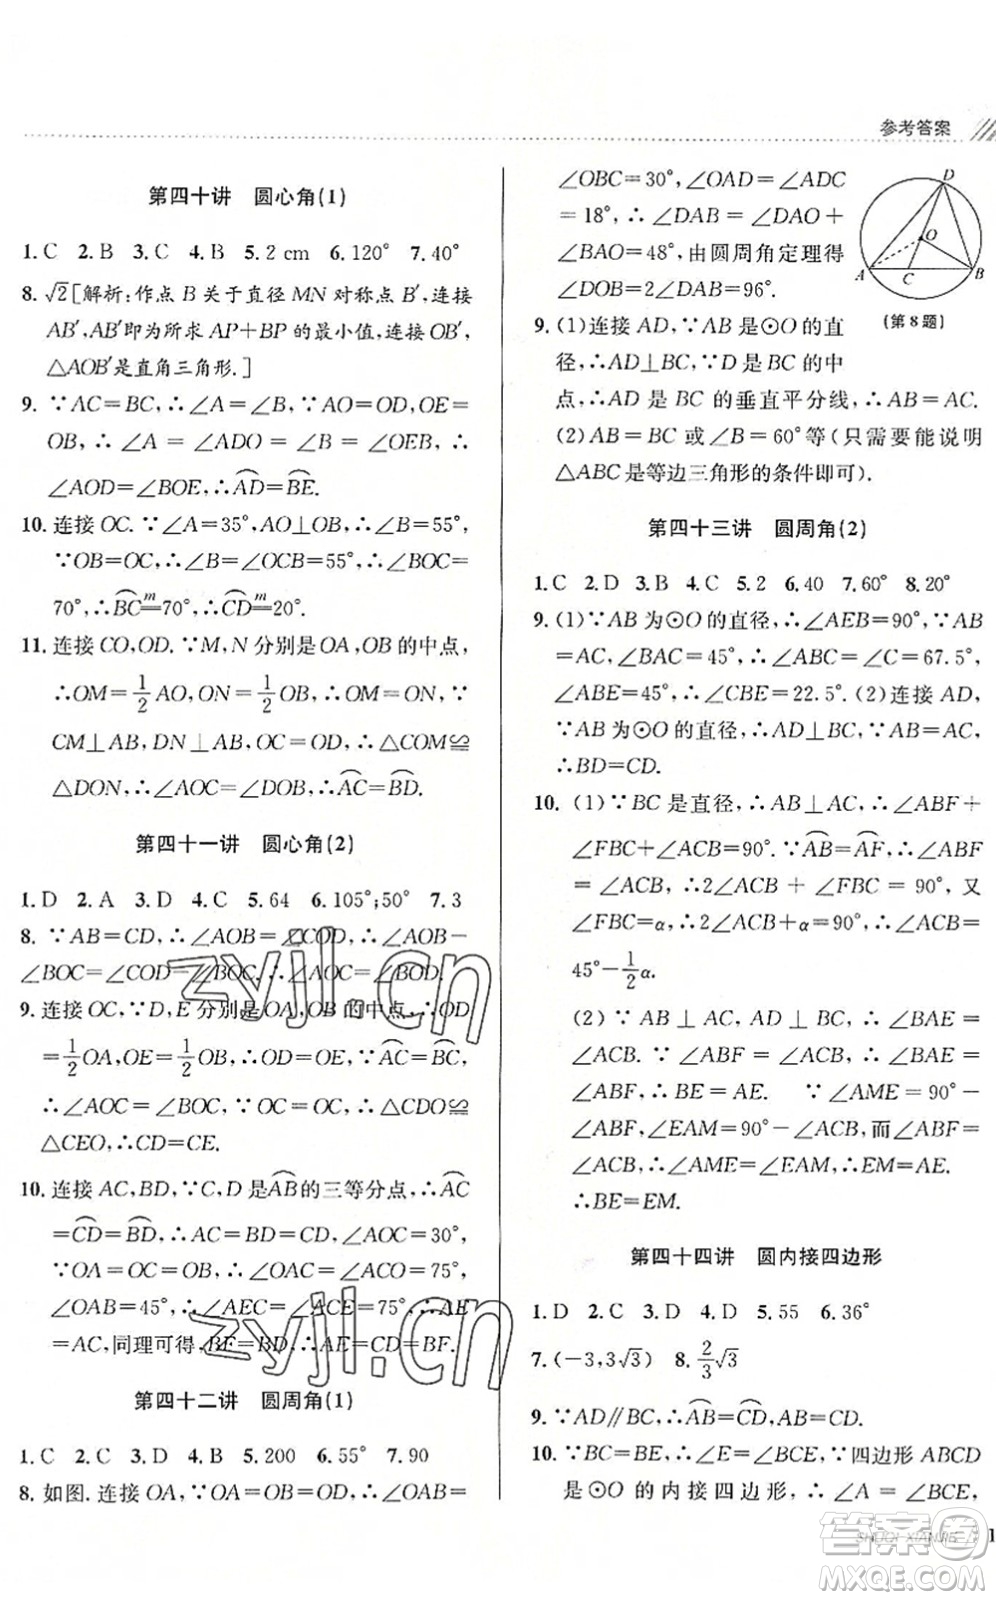 参考答案
第四十讲 圆心角(1)
1. C 2. B 3. C 4. B 5. 2 cm 6. 120° 7. 40°
8. √2[解析:作点 B 关于直径 MN 对称点 B′,连接
AB′,AB′即为所求 AP+BP 的最小值,连接 OB′,
△AOB′是直角三角形.]
9. ∵AC=BC,∴∠A=∠B,∵AO=OD,OE=
OB,∴∠A=∠ADO=∠B=∠OEB,∴
∠AOD=∠BOE,∴⌒AD=⌒BE.
10. 连接 OC. ∵∠A=35°,AO⊥OB,∴∠B=55°,
∵OB=OC,∴∠B=∠OCB=55°,∴∠BOC=
70°,∴⌒BC m= 70°,∴⌒CD m= 20°.
11. 连接 CO,OD. ∵M,N 分别是 OA,OB 的中点,
∴OM=1/2 AO,ON=1/2 OB,∴OM=ON,∵
CM⊥AB,DN⊥AB,OC=OD,∴△COM≌
△DON,∴∠AOC=∠DOB,∴⌒AC=⌒BD.
第四十一讲 圆心角(2)
1. D 2. A 3. D 4. C 5. 64 6. 105°;50° 7. 3
8. ∵AB=CD,∴∠AOB=∠COD,∴∠AOB-
∠BOC=∠COD-∠BOC,∴∠AOC=∠BOD.
9. 连接 OC,∵D,E 分别是 OA,OB 的中点,∴OD
=1/2 OA,OE=1/2 OB,∴OD=OE,∵⌒AC=⌒BC,
∴∠AOC=∠BOC,∵OC=OC,∴△CDO≌
△CEO,∴CD=CE.
10. 连接 AC,BD,∵C,D 是⌒AB的三等分点,∴⌒AC
=⌒CD=⌒BD,∴AC=BD=CD,∠AOC=30°,
∵OA=OC=OD,∴∠ACO=75°,∵∠AOB=90°,
∠OAB=45°,∴∠AEC=∠ACO=75°,∴AE
=AC,同理可得,BF=BD,∴AE=CD=BF.
第四十二讲 圆周角(1)
1. C 2. C 3. D 4. B 5. 200 6. 55° 7. 90
8. 如图. 连接 OA,∵OA=OB=OD,∴∠OAB=
∠OBC=30°,∠OAD=∠ADC
=18°,∴∠DAB=∠DAO+
∠BAO=48°,由圆周角定理得
∠DOB=2∠DAB=96°.
D
O
A
C
B
(第 8 题)
9. (1)连接 AD,∵AB 是⊙O 的直
径,∴AD⊥BC,∵D 是 BC 的中
点,∴AD 是 BC 的垂直平分线,∴AB=AC.
(2)AB=BC 或∠B=60°等(只需要能说明
△ABC 是等边三角形的条件即可).
第四十三讲 圆周角(2)
1. C 2. D 3. B 4. C 5. 2 6. 40 7. 60° 8. 20°
9. (1)∵AB 为⊙O 的直径,∴∠AEB=90°,∵AB
=AC,∠BAC=45°,∴∠ABC=∠C=67.5°,
∠ABE=45°,∴∠CBE=22.5°. (2)连接 AD,
∵AB 为⊙O 的直径,∴AD⊥BC,∵AB=AC,
∴BD=CD.
10. (1)∵BC 是直径,∴AB⊥AC,∴∠ABF+
∠FBC+∠ACB=90°. ∵⌒AB=⌒AF,∴∠ABF
=∠ACB,∴2∠ACB+∠FBC=90°,又
∠FBC=α,∴2∠ACB+α=90°,∴∠ACB=
45°-1/2 α.
(2)∵AB⊥AC,AD⊥BC,∴∠BAE=
∠ACB. ∵∠ABF=∠ACB,∴∠BAE=
∠ABF,∴BE=AE. ∵∠AME=90°-
∠ABF,∠MAE=90°-∠ACB,而∠ABF=
∠ACB,∴∠AME=∠MAE,∴EM=AE.
∴BE=EM.
第四十四讲 圆内接四边形
1. D 2. C 3. B 4. D 5. 55 6. 36°
7. (-3,3√3) 8. 2/3 √3
9. ∵AD∥BC,∴⌒AB=⌒CD,∴AB=CD.
10. ∵BC=BE,∴∠E=∠BCE,∵四边形 ABCD
是⊙O 的内接四边形,∴∠A=∠BCE,
SHUXUE XIANJIE
1
zyjl.cn
zyjl.cn
答案圈
MXQE.COM